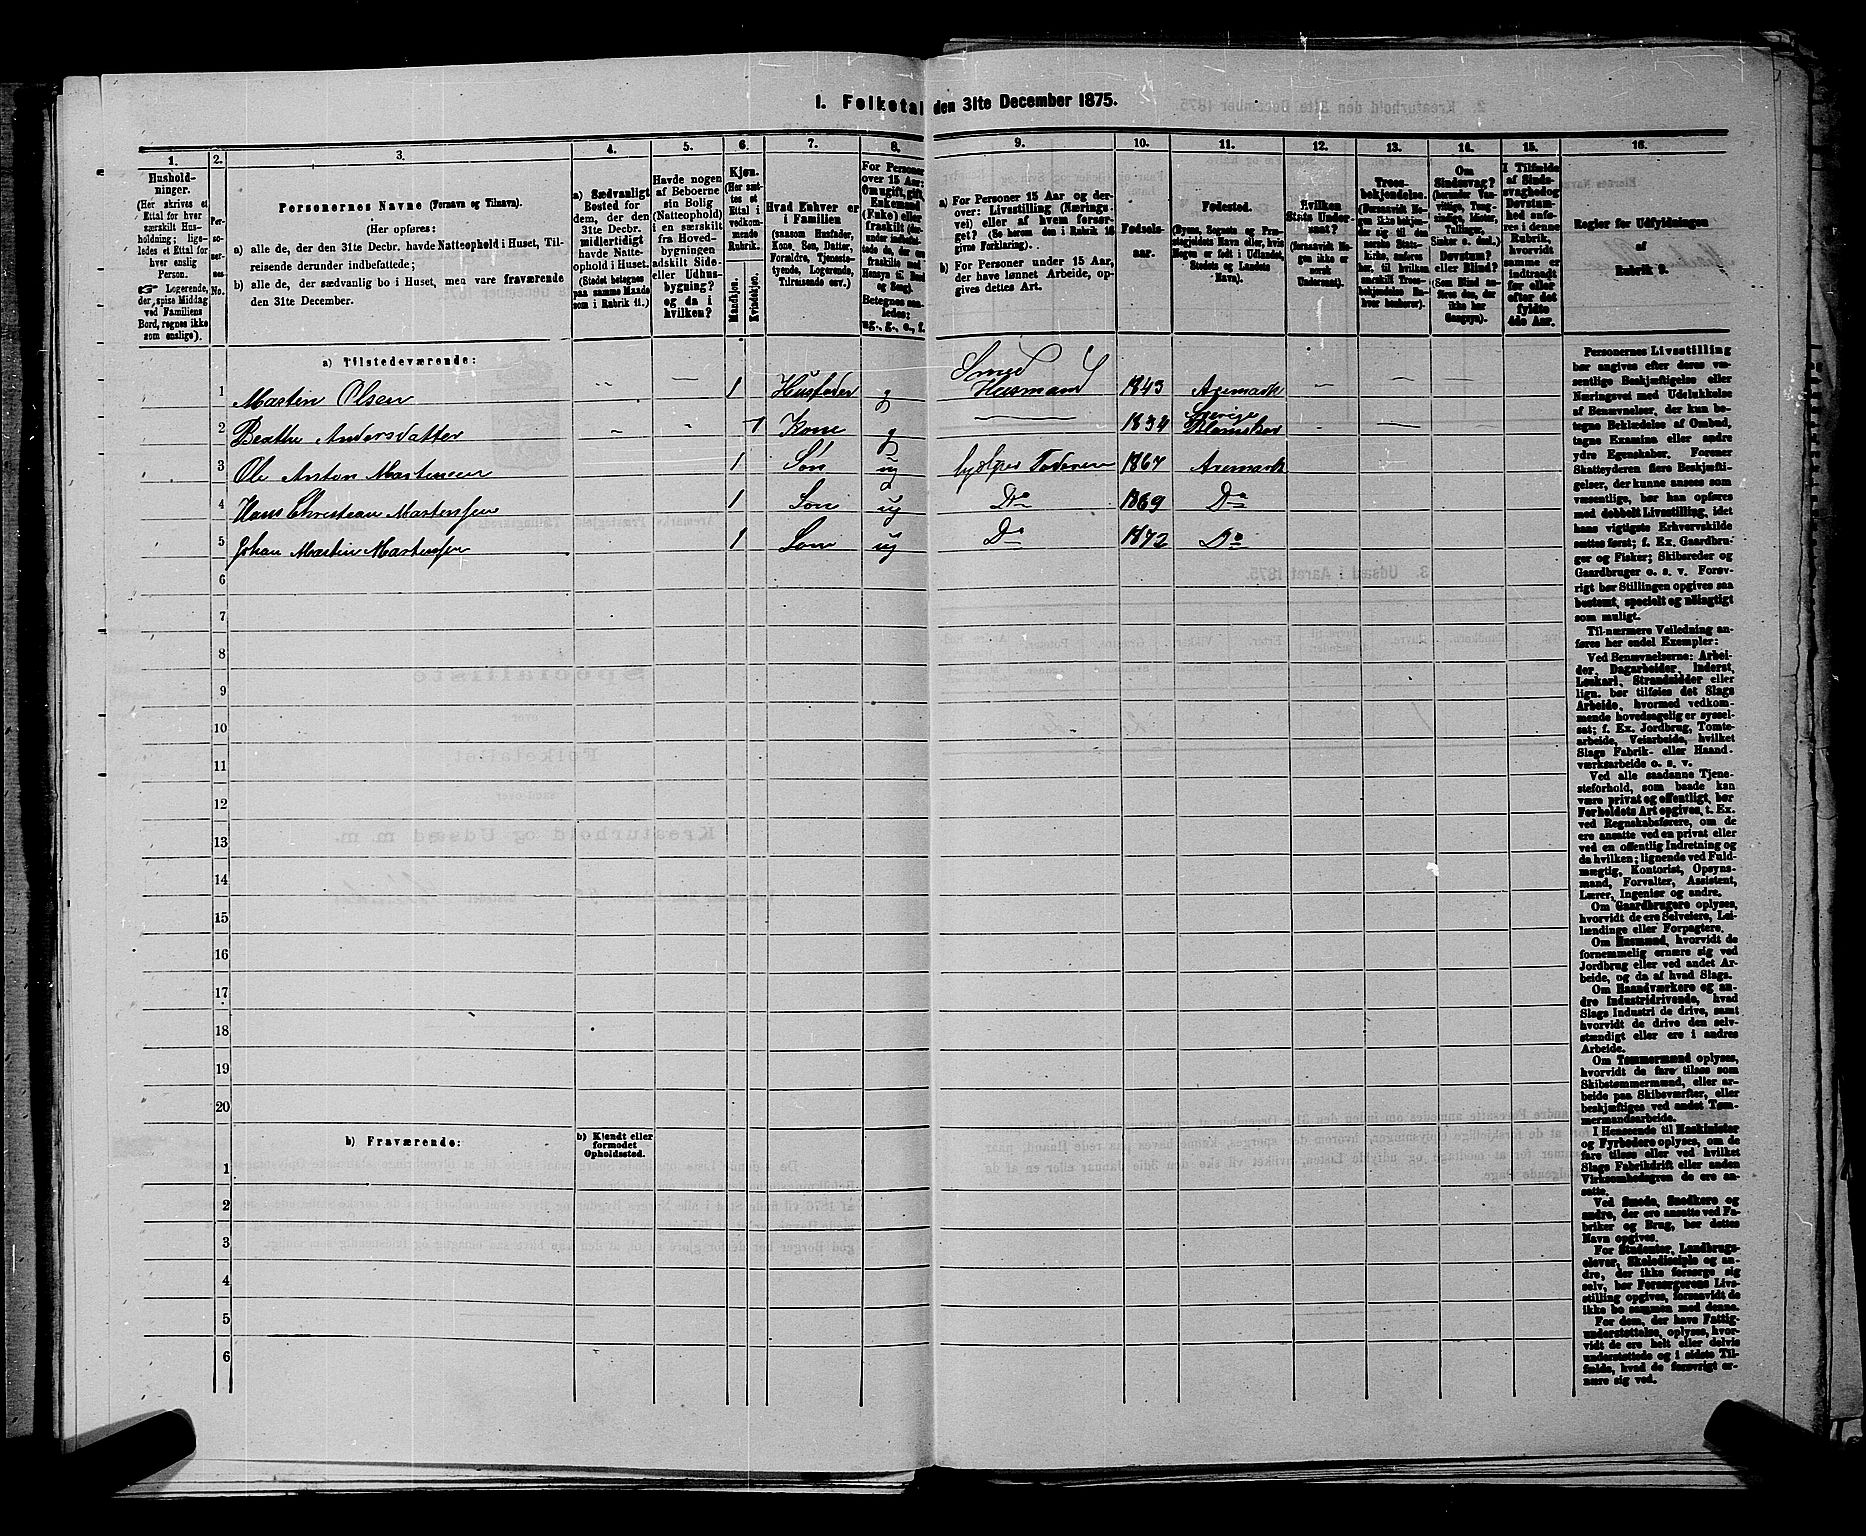 I. Folketal den 31te December 1875.
1.
Hushold-
ninger.
(Her skrives et
Ettal for hver
særskilt Hus-
holdning; lige-
ledes et Ettal for
hver enslig
Person.
Logerende,
der spise Middag
ved Familiens
Bord, regnes ikke
som enslige).
2.
Per-
so-
nernes
No.
3.
Personernes Navne (Fornavn og Tilnavn).
(Her opføres:
a) alle de, der den 31te Decbr. havde Natteophold i Huset, Til-
reisende derunder indbefattede;
b) alle de, der sædvanlig bo i Huset, men vare fraværende
den 31te December.
4.
a) Sædvanligt
Bosted for
dem, der den
31te Decbr.
midlertidigt
havde Natte-
ophold i Huset.
(Stedet betegnes
paa samme Maade
som i Rubrik 11.)
5.
Havde nogen
af Beboerne
sin Bolig
(Natteophold)
i en særskilt
fra Hoved-
bygningen
adskilt Side-
eller Udhus-
bygning?
og da i
hvilken?
6.
Kjøn.
(Her sæt-
tes et
Ettal i
vedkom-
mende
Rubrik.
Mandkjøn.
Kvindekjøn.
7.
Hvad Enhver er
i Familien
(saasom Husfader,
Kone, Søn, Datter,
Forældre, Tjeneste-
tyende, Logerende,
Tilreisende osv.)
8.
For Personer
over 15 Aar:
Om ugift, gift,
Enkemand
(Enke) eller
fraskilt (der-
under indbefat-
tede de, der ere
fraskilte med
Hensyn til Bord
og Seng).
Betegnes saa-
ledes:
ug., g., e., f.
9.
a) For Personer 15 Aar og der-
over: Livsstilling (Nærings-
vei) eller af hvem forsør-
get? (Se herom den i Rubrik 16
givne Forklaring).
b) For Personer under 15 Aar,
der have lønnet Arbeide, op-
gives dettes Art.
10.
Fødsels-
aar.
11.
Fødested.
(Byens, Sognets og Præ-
stegjeldets Navn eller, hvis
Nogen er født i Udlandet,
Stedets og Landets
Navn).
12.
Hvilken
Stats Under-
saat?
(forsaavidt No-
gen ikke er
norsk
Undersaat).
13.
Troes-
bekjendelse.
(Forsaavidt No-
gen ikke beken-
der sig til den
norske Stats-
kirke, anføres
her, til hvilken
Troes-
bekjendelse En-
hver bekender).
14.
Om
Sindssvag?
(herunder Van-
vittige, Tung-
sindige, Idioter,
Tullinger,
Sinker o. desl.)
Døvstum?
eller Blind?
(Som Blind an-
føres den, der
ikke har
Gangsyn).
15.
I Tilfælde
af Sinds-
svaghed og
Døvstum-
hed anfø-
res i denne
Rubrik,
hvorvidt
samme er
indtraadt
før eller
efter det
fyldte
4de Aar.
16.
Regler for Udfyldningen
af
Rubrik 9.
a) Tilstedeværende:
1 Martin Olsen 1 Husfader g Smed Husmand 1843 Aremark
2 Berthe Andersdatter 1 Kone g 1834 Sverige Blomskov
3 Ole Anton Martinsen 1 Søn ug hjelper Faderen 1867 Aremark
4 Hans Christian Martinsen 1 Søn ug Do 1869 Do
5 Johan Martin Martinsen 1 Søn ug Do 1872 Do
6
7
8
9
10
11
12
13
14
15
16
17
18
19
20
b) Fraværende:
b) Kjendt eller
formodet
Opholdssted.
1
2
3
4
5
6
Personernes Livsstilling
bør angives efter deres væ-
sentlige Beskjæftigelse eller
Næringsvei med Udelukkelse
af Benævnelser, der kun be-
tegne Beklædelse af Ombud,
tagne Examina eller andre
ydre Egenskaber. Forener
Skatteyderen flere Beskjæfti-
gelser, der kunne ansees som
væsentlige, bør han opføres
med dobbelt Livsstilling, idet
hans vigtigste Erhvervskilde
sættes først; f. Ex. Gaardbru-
ger og Fisker; Skibsreder og
Gaardbruger o. s. v. Forøv-
rigt bør Stillingen opgives saa
bestemt, specielt og nøiagtigt
som muligt.
Til nærmere Veiledning an-
føres her endel Exempler:
Ved Benævnelserne: Arbei-
der, Dagarbeider, Inderst,
Løskarl, Strandsidder eller
lign. bør tilføies det Slags
Arbeide, hvormed vedkom-
mende hovedsagelig er syssel-
sat; f. Ex. Jordbrug, Tomte-
arbeide, Veiarbeide, hvilket
Slags Fabrik- eller Haand-
værksarbeide o. s. v.
Ved alle saadanne Tjene-
steforhold, som baade kan
være privat og offentligt, bør
Forholdets Art opgives, t. Ex.
ved Regnskabsførere, om de
ere ansatte ved en privat eller
ved en offentlig Indretning og
da hvilken; lignende ved Fuld-
mægtig, Kontorist, Opsyns-
mand, Forvalter, Assistent,
Lærer, Ingeniør og andre.
Om Gaardbrugere oplyses,
hvorvidt de ere Selveiere, Lei-
lændinge eller Forpagtere.
Om Husmænd, hvorvidt de
fornemmelig ernære sig ved
Jordbrug eller ved andet Ar-
beide, og da af hvad Slags.
Om Haandværkere og an-
dre Industridrivende, hvad
Slags Industri de drive, samt
hvorvidt de drive den selv-
stændigt eller ere i andres
Arbeide.
Om Tømmermænd oplyses,
hvorvidt de fare tilsøs som
Skibstømmermænd, eller ar-
beide paa Skibsværfter, eller
beskjæftiges ved andet Tøm-
mermandsarbeide.
I Henseende til Maskinister
og Fyrbødere oplyses, om de
fare tilsøs eller ved hvilket
Slags Fabrikdrift eller anden
Virksomhedsgren de ere an-
satte.
Ved Smede, Snedkere og
andre, der ere ansatte ved Fa-
briker og Brug, bør dettes
Navn opgives.
For Studenter, Landbrugs-
elever, Skoledisciple og an-
dre, der ikke forsørge sig
selv, bør Forsørgerens Livs-
stilling opgives, forsaavidt de
ikke bo sammen med denne.
For dem, der have Fattig-
understøttelse, oplyses, hvor-
vidt de ere helt eller delvis
understøttede og i sidste Til-
fælde, hvad de forøvrigt er-
nære sig ved.